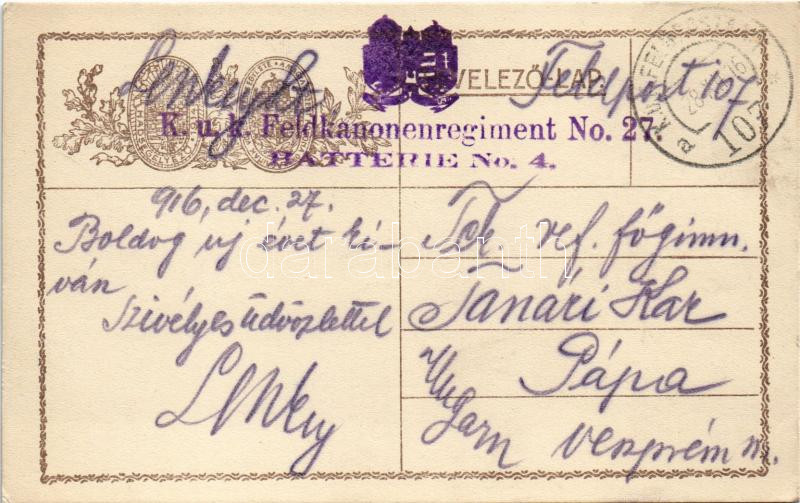 Feldpost 107
VELEZŐ-LAP.
K. u. k. Feldkanonenregiment No. 27.
BATTERIE No. 4.
107
916, dec. 27.
Boldog uj évet ki-
ván
Szivélyes üdvözlettel
Lenkey
Tek. ref. főgimn.
Tanári Kar
Pápa
Ungarn veszprém m.
darabanth